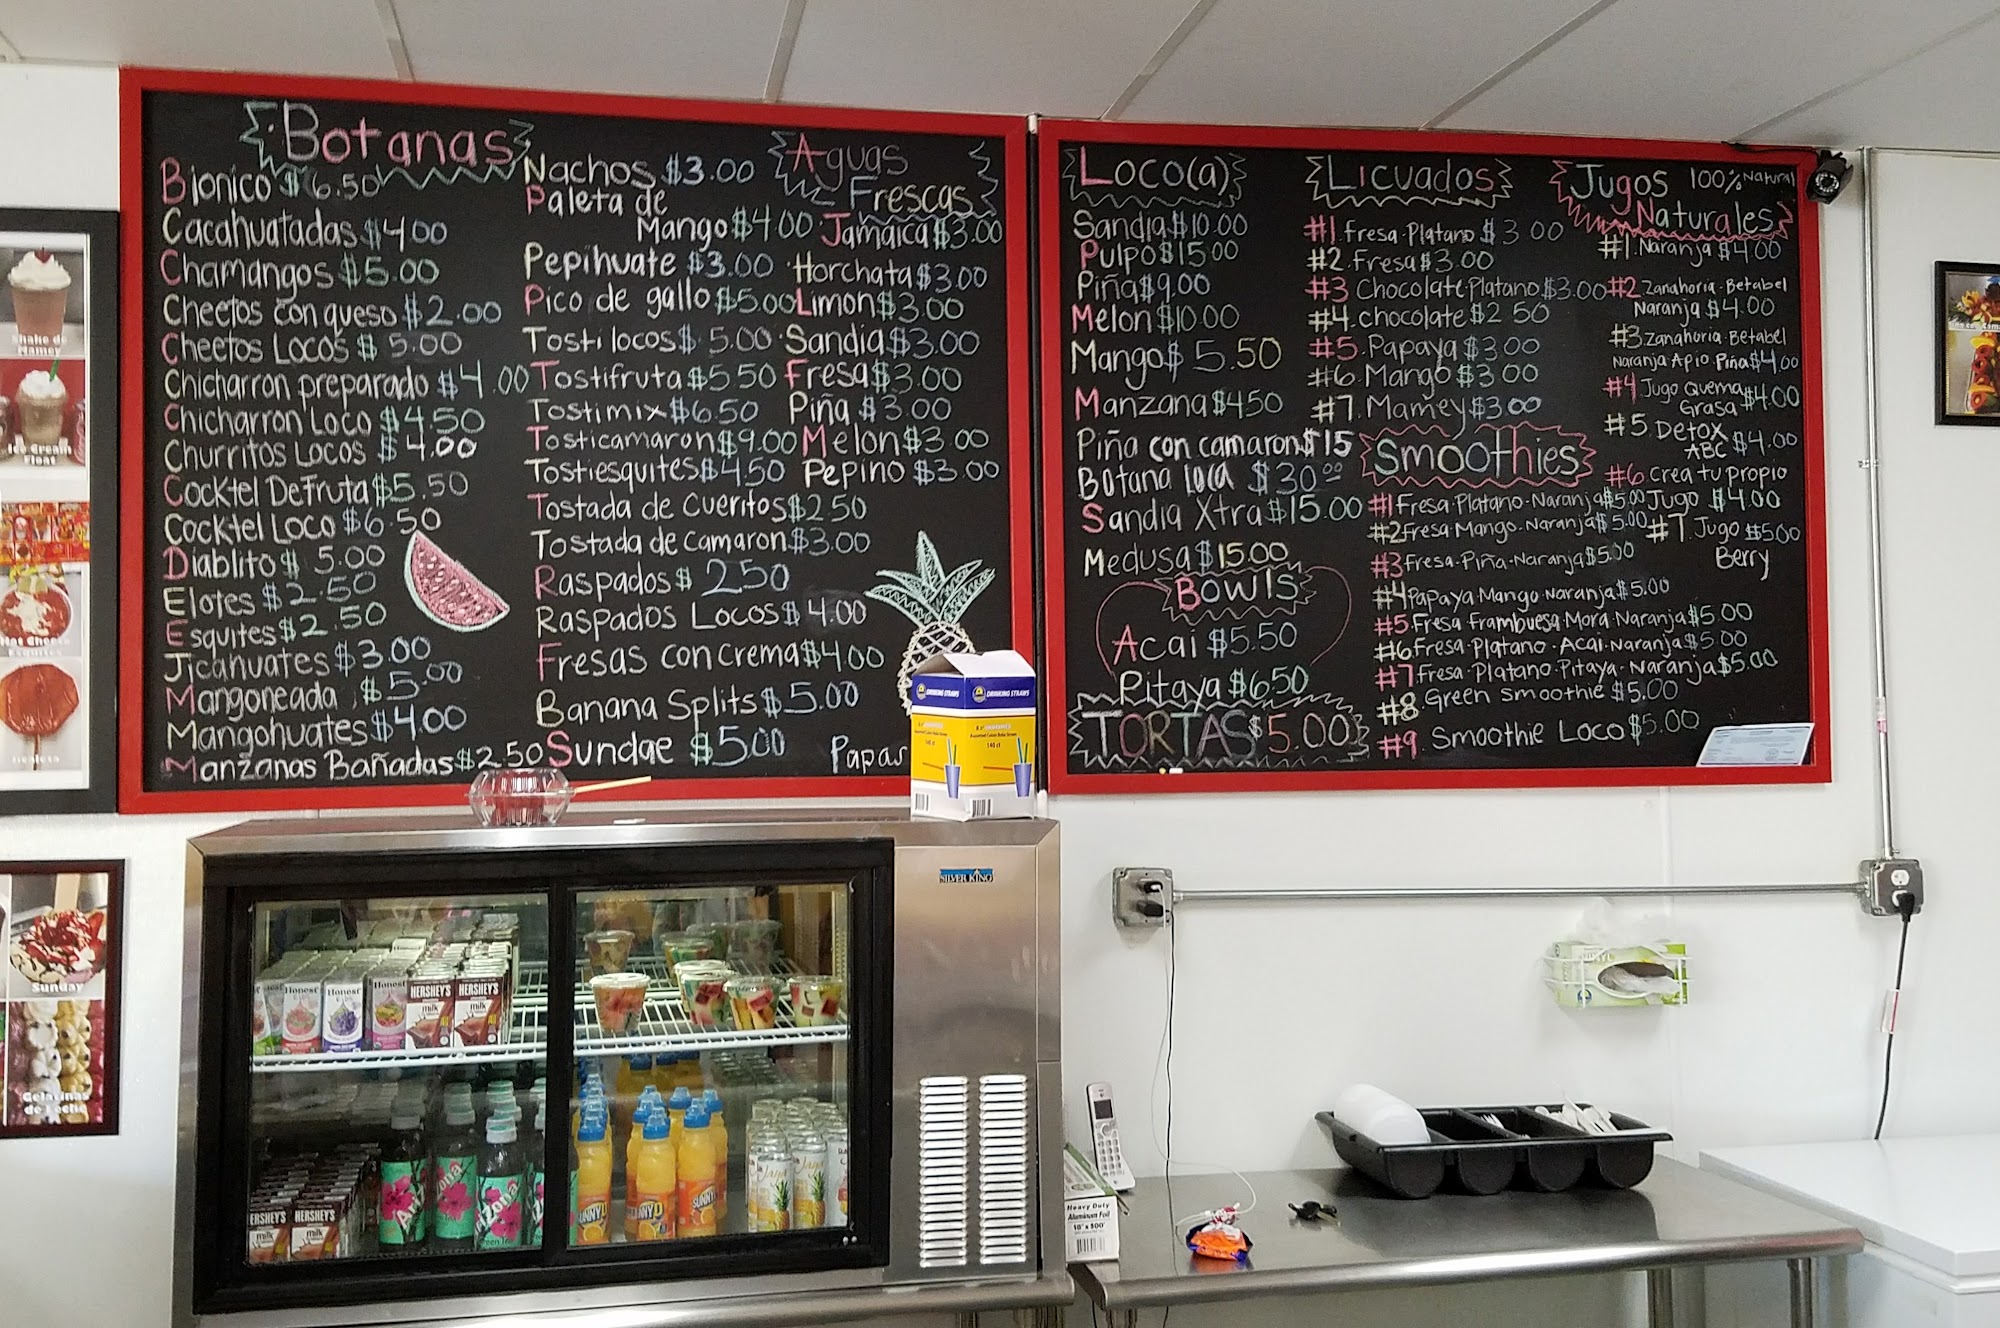 Botanas
Bionico $6.50
Cacahuatadas $4.00
Chamangos $5.00
Cheetos con queso $2.00
Cheetos Locos $5.00
Chicharron preparado $4.00
Chicharron Loco $4.50
Churritos Locos $4.00
Cocktel De Fruta $5.50
Cocktel Loco $6.50
Diablito $5.00
Elotes $2.50
Esquites $2.50
Jicahuates $3.00
Mangoneada $5.00
Mangohuates $4.00
Manzanas Bañadas $2.50
Nachos $3.00
Paleta de
Mango $4.00
Pepihuate $3.00
Pico de gallo $5.00
Tostilocos $5.00
Tostifruta $5.50
Tostimix $6.50
Tosticamaron $9.00
Tostiesquites $4.50
Tostada de Cueritos $2.50
Tostada de camaron $3.00
Raspados $2.50
Raspados Locos $4.00
Fresas con crema $4.00
Banana Splits $5.00
Sundae $5.00
Papas
Aguas
Frescas
Jamaica $3.00
Horchata $3.00
Limon $3.00
Sandia $3.00
Fresa $3.00
Piña $3.00
Melon $3.00
Pepino $3.00
Loco(a)
Sandia $10.00
Pulpo $15.00
Piña $9.00
Melon $10.00
Mango $5.50
Manzana $4.50
Piña con camaron $15
Botana loca $30.00
Sandia Xtra $15.00
Medusa $15.00
Bowls
Acai $5.50
Pitaya $6.50
TORTAS $5.00
Licuados
#1. Fresa-Platano $3.00
#2. Fresa $3.00
#3 Chocolate-Platano $3.00
#4. chocolate $2.50
#5. Papaya $3.00
#6. Mango $3.00
#7. Mamey $3.00
Smoothies
#1 Fresa-Platano-Naranja $5.00
#2 Fresa-Mango-Naranja $5.00
#3 Fresa-Piña-Naranja $5.00
#4 Papaya Mango Naranja $5.00
#5 Fresa Frambuesa Mora Naranja $5.00
#6 Fresa-Platano-Acai-Naranja $5.00
#7 Fresa-Platano-Pitaya-Naranja $5.00
#8. Green Smoothie $5.00
#9. Smoothie Loco $5.00
Jugos 100% Natural
Naturales
#1. Naranja $4.00
#2 Zanahoria-Betabel
Naranja $4.00
#3 Zanahoria-Betabel
Naranja-Apio Piña $4.00
#4 Jugo Quema
Grasa $4.00
#5. Detox
ABC $4.00
#6 crea tu propio
Jugo $4.00
#7. Jugo $5.00
Berry
Shake de
Mamey
Ice Cream
Float
Hot Cheeto
Esquites
Sunday
Gelatinas
de Leche
DRINKING STRAWS
DRINKING STRAWS
140 ct
SILVER KING
Honest
Honest
Honest
HERSHEY'S
milk
HERSHEY'S
milk
HERSHEY'S
milk
HERSHEY'S
milk
Arizona
SUNNYD
SUNNYD
SUNNYD
Jana
Heavy Duty
Aluminum Foil
18" x 500'